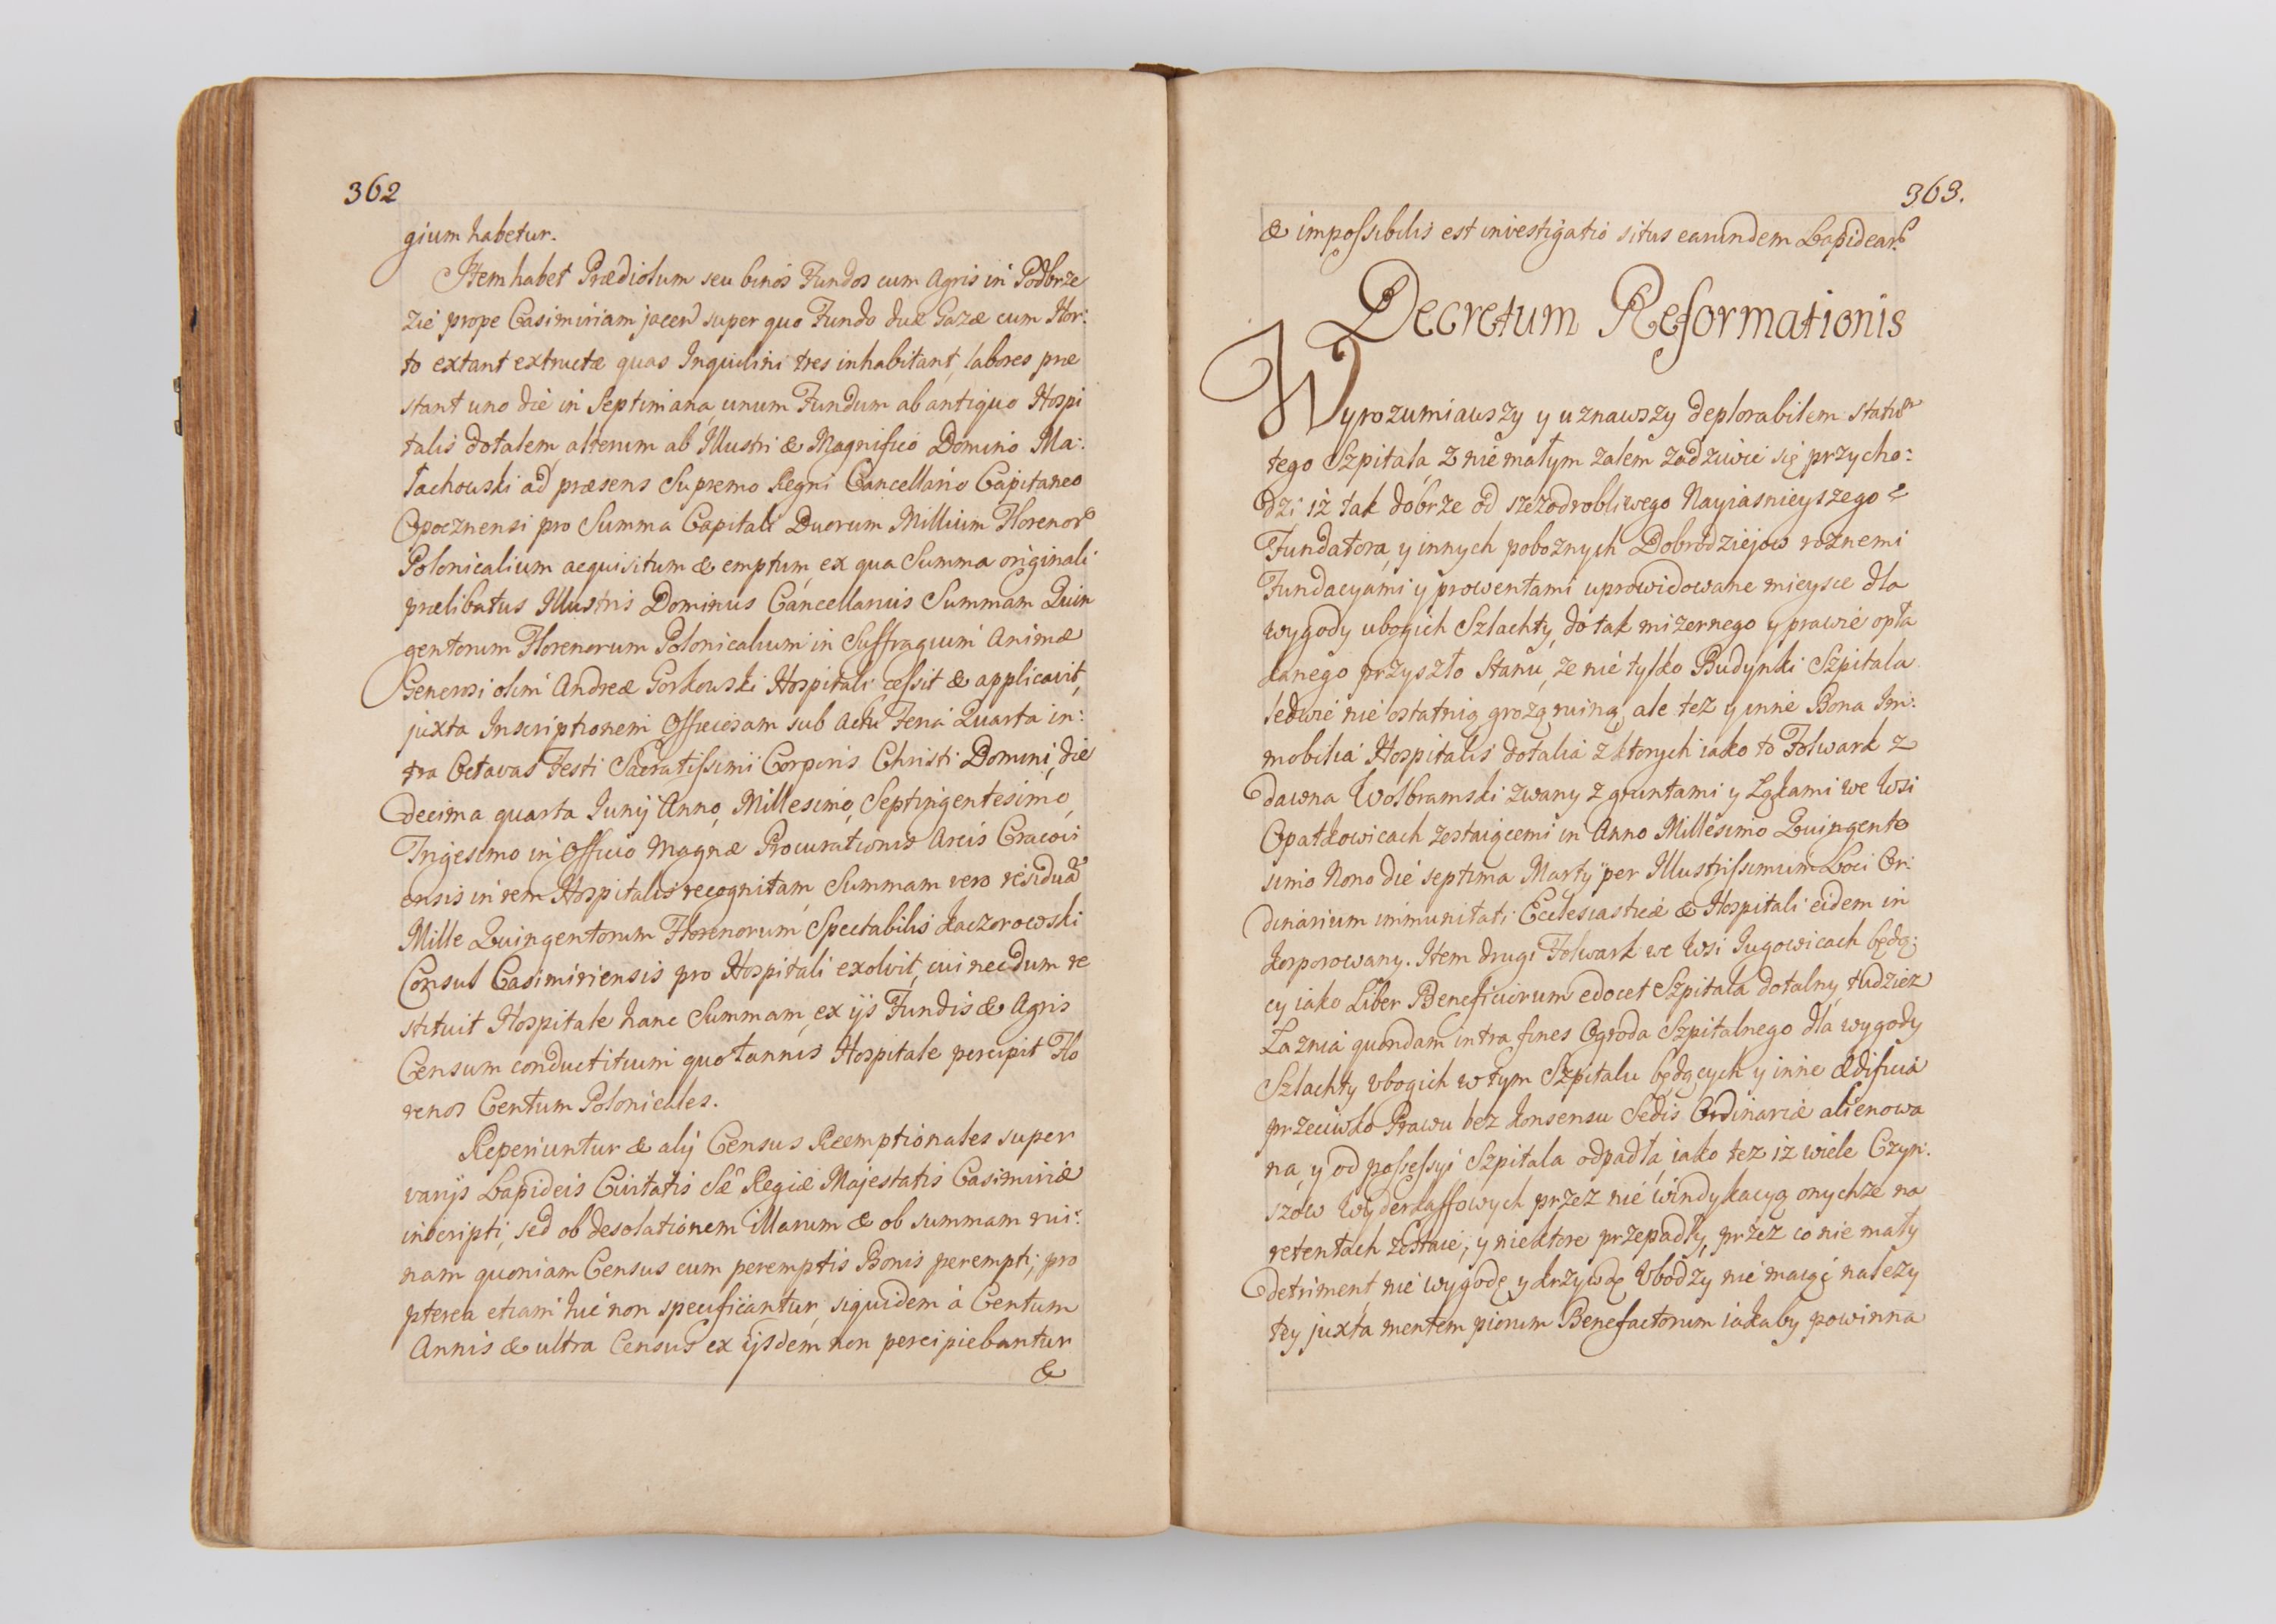 362
gium habetur.
Item habet Prædiolum seu binos Fundos cum Agris in Podbrze
zie prope Casimiriam jacen super quo Fundo duæ Gazæ cum Hor:
to extant extructæ quas Inquilini tres inhabitant, labores præ
stant uno die in Septimana, unum Fundum ab antiquo Hospi
talis dotalem alterum ab Illustri & Magnifico Domino Ma:
łachowski ad præsens Supremo Regni Cancellario Capitaneo
Opocznensi pro Summa Capitali Duorum Millium Florenor
Polonicalium acquisitum & emptum, ex qua Summa originali
prælibatus Illustris Dominus Cancellarius Summam Quin
gentorum Florenorum Polonicalium in Suffragium Animæ
Generosi olim Andreæ Gorkowski Hospitali cessit & applicavit,
juxta Inscriptionem Officiosam sub Actu Feria Quarta in:
tra Octavas Festi Sacratissimi Corporis Christi Domini, die
decima quarta Junij Anno, Millesimo, Septingentesimo,
Trigesimo in Officio Magnæ Procurationis Arcis Cracovi
ensis in rem Hospitalis recognitam, Summam vero residuã
Mille Quingentorum Florenorum Spectabilis Kaczorowski
Consul Casimiriensis pro Hospitali exolvit, cui necdum re
stituit Hospitale hanc Summam, ex ijs Fundis & Agris
Censum conductitium quotannis Hospitale percipit Flo
renos Centum Polonicales.
Reperiuntur & alij Census Reemptionales super
varijs Lapideis Civitatis Sæ Regiæ Majestatis Casimiriæ
inscripti, sed ob desolationem illarum & ob summam rui:
nam quoniam Census cum peremptis Bonis perempti, pro
pterea etiam hic non specificantur, siquidem á Centum
Annis & ultra Census ex ijsdem non percipiebantur
&
363.
& impossibilis est investigatio situs earundem Lapidear
Decretum Reformationis
Wyrozumiawszy y uznawszy deplorabilem statum
tego Szpitala, z nie małym zalem zadziwic się przycho:
dzi iż tak dobrze od szczodrobliwego Nayiasnieyszego
Fundatora, y innych poboznych Dobrodziejow roznemi
Fundacyami y prowentami uprowidowane mieysce dla
wygody ubogich Szlachty, do tak mizernego y prawie opła
kanego przyszło Stanu, ze nie tylko Budynki Szpitala
ledwie nie ostatnią grożą ruiną, ale tez y inne Bona Im:
mobilia Hospitalis dotalia z ktorych iako to Folwark z
dawna Wolbramski zwany z gruntami y Łąkami we Wsi
Opatkowicach zostaiącemi in Anno Millesimo Quingente
simo Nono die septima Martÿ per Illustrissimum Loci Or:
dinarium immunitati Ecclesiasticæ & Hospitali eidem in
korporowany. Item drugi Folwark we Wsi Jugowicach będą:
cy iako Liber Beneficiorum edocet Szpitala dotalny, tudziez
Łaznia quondam intra fines Ogroda Szpitalnego dla wygody
Szlachty Vbogich w tym Szpitalu będących y inne Ædificia
przeciwko Prawu bez konsensu Sedis Ordinariæ alienowa
na, y od possessyi Szpitala odpadła, iako tez iz wiele Czyn:
szow Wyderkaffowych przez nie windykacyą onychze na
retentach zostaie, y niektore przepadły, przez co nie mały
detriment nie wygodę y krzywdę Vbodzy nie maiąc nalezy
tey juxta mentem piorum Benefactorum iakaby powinna